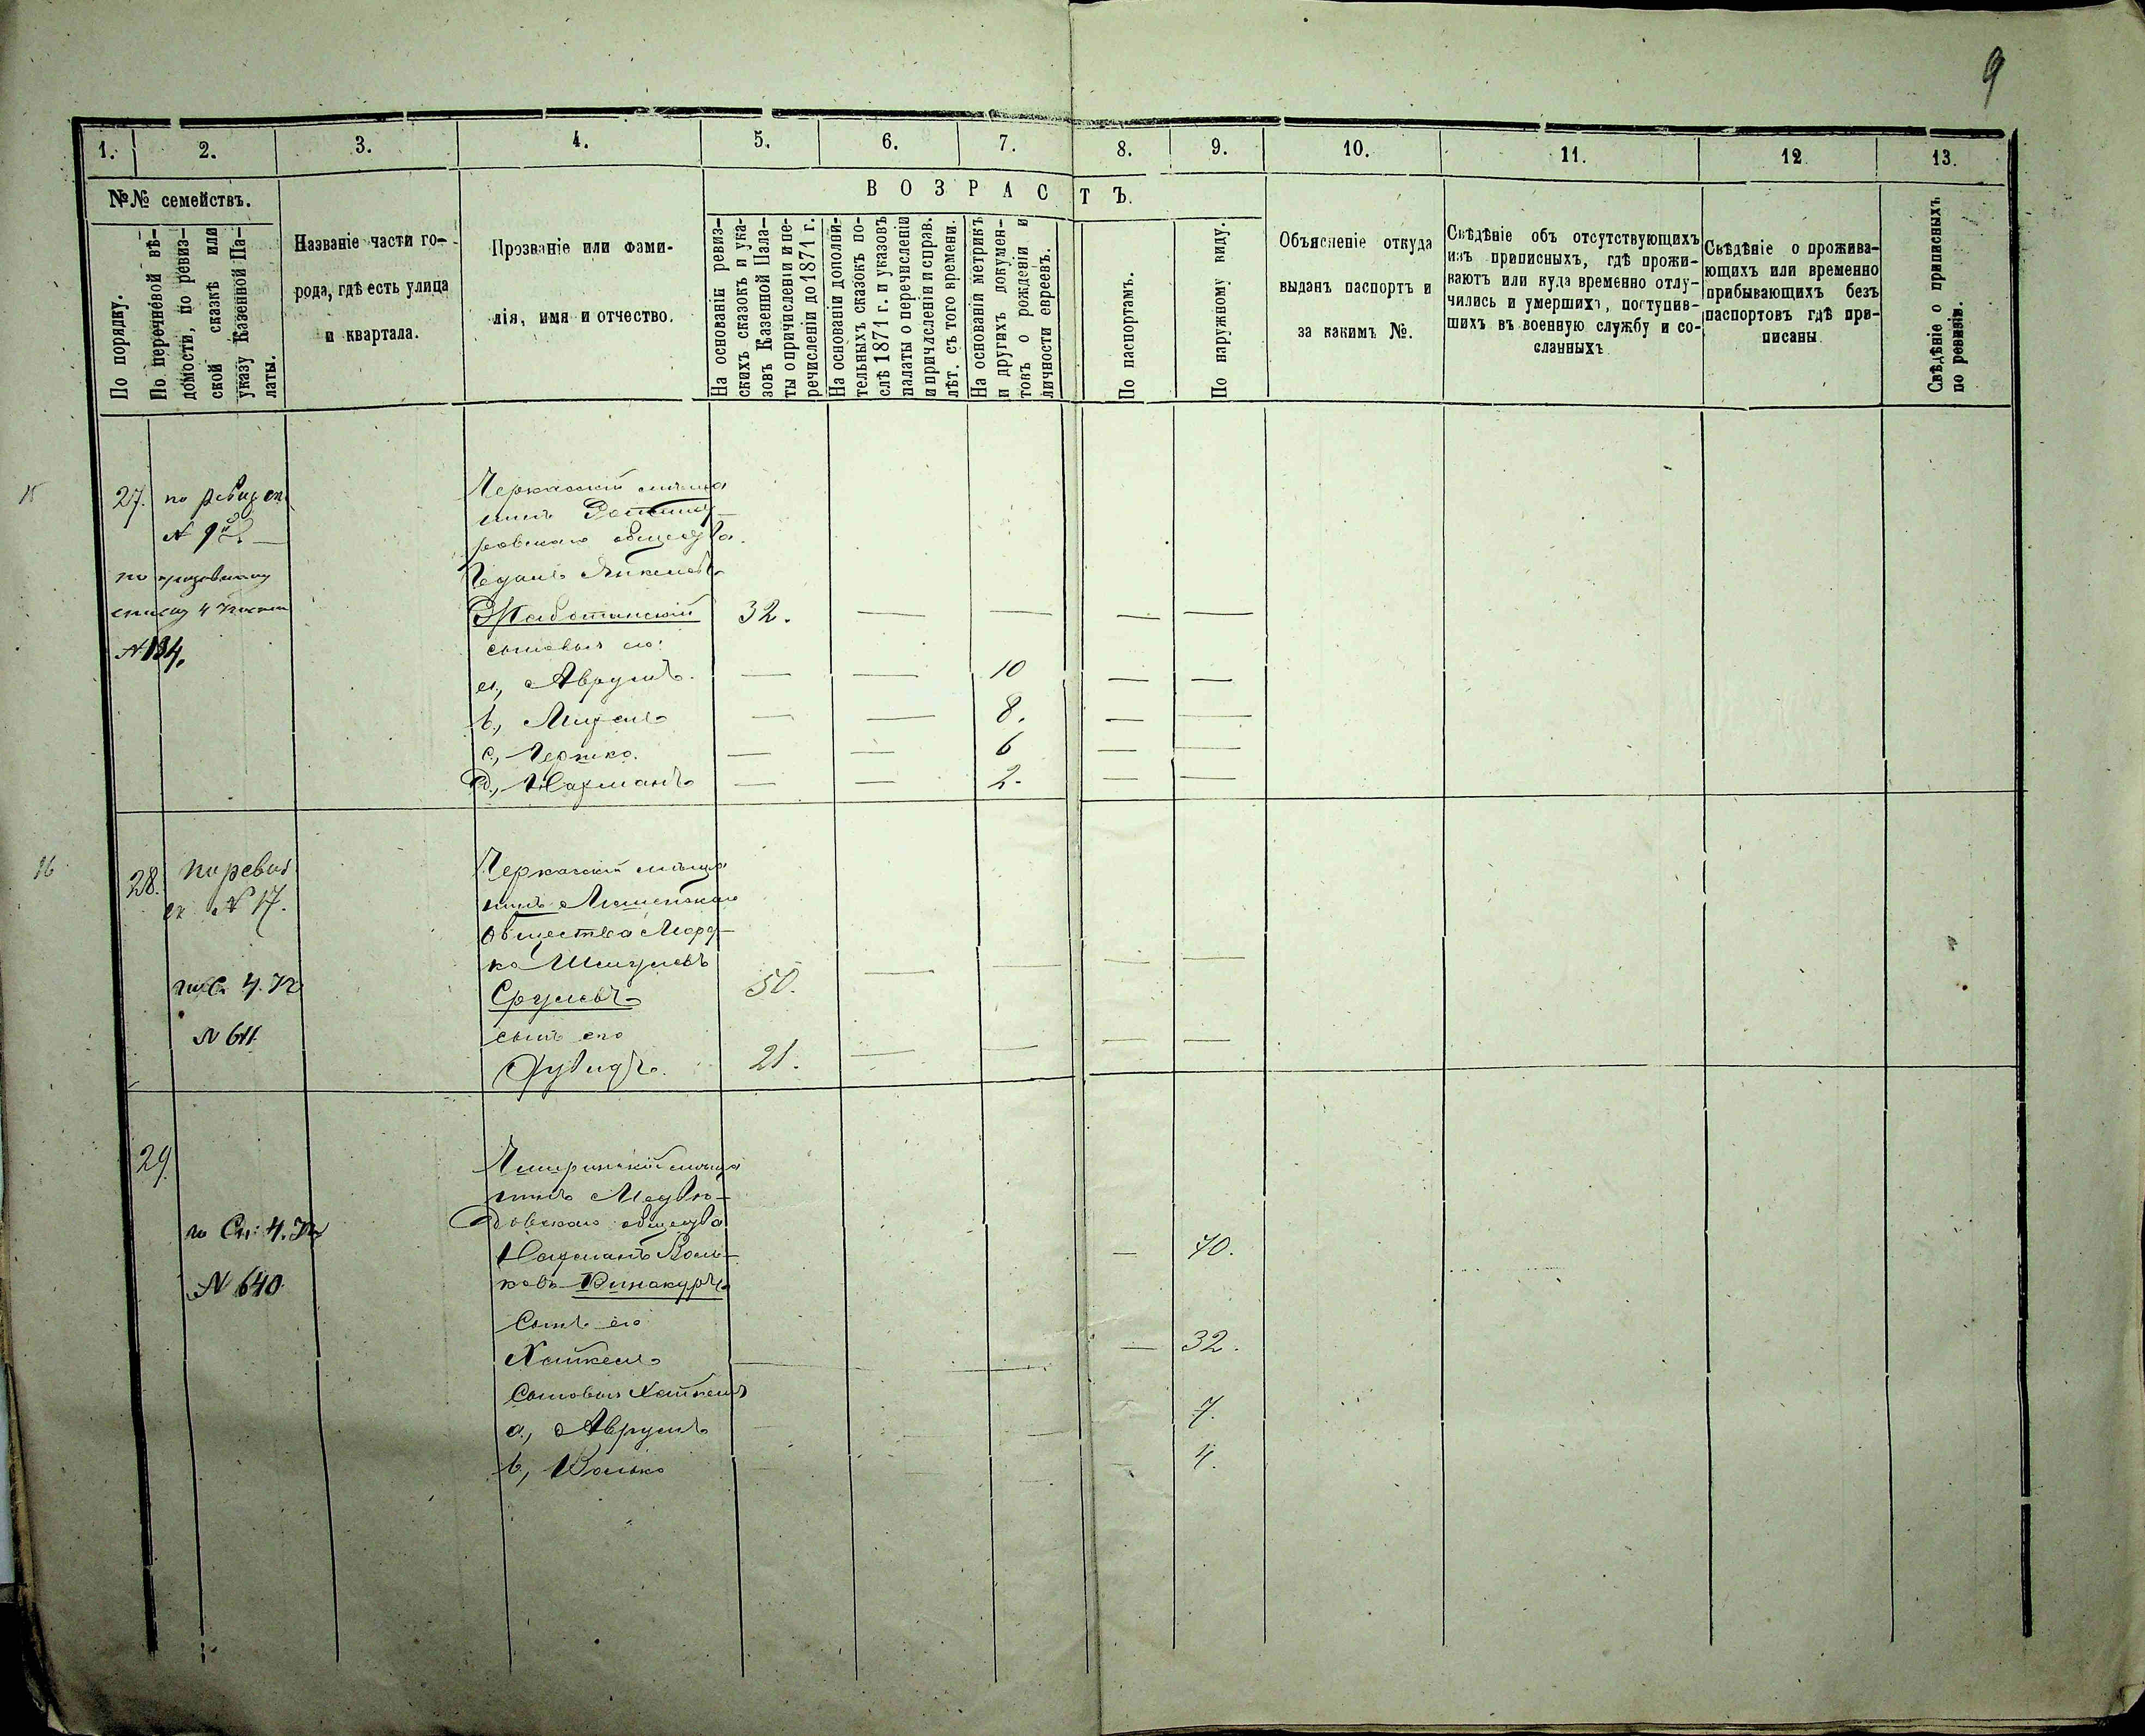 9
1. 2. 3. 4. 5. 6. 7. 8. 9. 10. 11. 12 13.
№№ семействъ.
По порядку.
По перечневой вѣ-
домости, по ревиз-
ской сказкѣ или
указу Казенной Па-
латы.
Названіе части го-
рода, гдѣ есть улица
и квартала.
Прозваніе или фами-
лія, имя и отчество.
ВОЗРАСТЪ.
На основаніи ревиз-
скихъ сказокъ и ука-
зовъ Казенной Пала-
ты о причислени и пе-
речисленіи до 1871 г.
На основаніи дополни-
тельныхъ сказокъ по-
слѣ 1871 г. и указовъ
палаты о перечисленіи
и причисленіи и справ.
лѣт. съ того времени.
На основаніи метрикъ
и другихъ докумен-
товъ о рожденіи и
личности евреевъ.
По паспортамъ.
По наружному виду.
Объясненіе откуда
выданъ паспортъ и
за какимъ №.
Свѣдѣніе объ отсутствующихъ
изъ приписныхъ, гдѣ прожи-
ваютъ или куда временно отлу-
чились и умершихъ, поступив-
шихъ въ военную службу и со-
сланныхъ
Свѣдѣніе о прожива-
ющихъ или временно
прибывающихъ безъ
паспортовъ гдѣ при-
писаны
Свѣдѣніе о приписныхъ
по ревизіи.
15
27. по ревиз ск
N
по призывному
списку 4
N 134.
Черкасскій мѣща
нинъ
ровскаго общества.
Янкелевъ
Жаботинскій 32. — — — —
сыновья его:
а, Аврумъ. — — 10 — —
b, — — 8. — —
c, Гершко. — — 6 — —
d, Нахманъ — — 2. — —
16
28. по ревиз
ск N 17.
4.
N 611
Черкасскій мѣща
нинъ
Общества Морд-
ко Шмулевъ
Срулевъ 50. — — — —
сынъ его
Дувидъ. 21. — — — —
29.
по Сп: 4.
N 640
Чигиринскій мѣща
нинъ Медвѣ-
довскаго общества
Нахманъ Воль- — 70.
ковъ Винакуръ
Сынъ его
Хаикель — 32.
Сыновья Хаикеля
а, Аврумъ 7.
b, Волько 4.